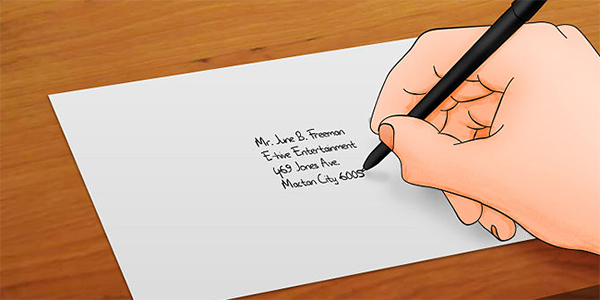 Mr. June B. Freeman
E-hive Entertainment
469 Jones Ave.
Macton City 6005